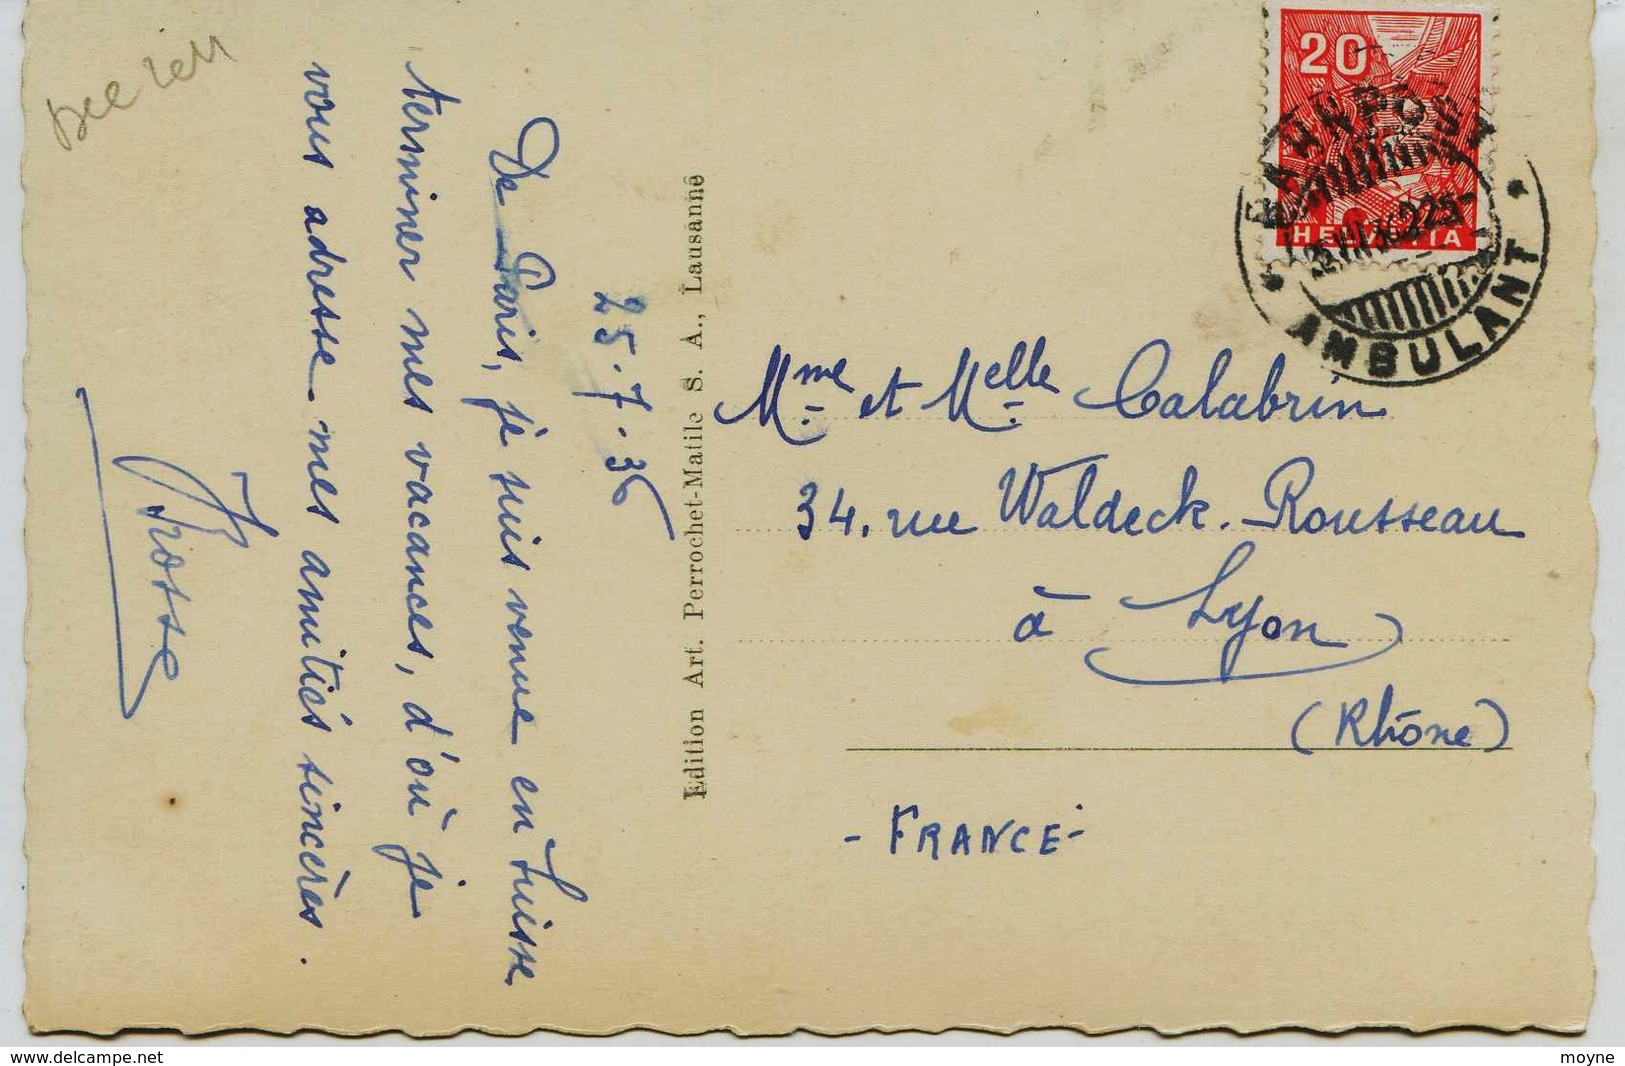 25.7.36
De Paris, je suis venue en Suisse
terminer mes vacances, d'où je
vous adresse mes amitiés sincères.
Edition Art. Perrochet-Matile S. A., Lausanne
20
HELVETIA
BAHNPOST
AMBULANT
Mme et Melle Calabrin
34, rue Waldeck-Rousseau
à Lyon
(Rhône)
- FRANCE -
www.delcampe.net
moyne